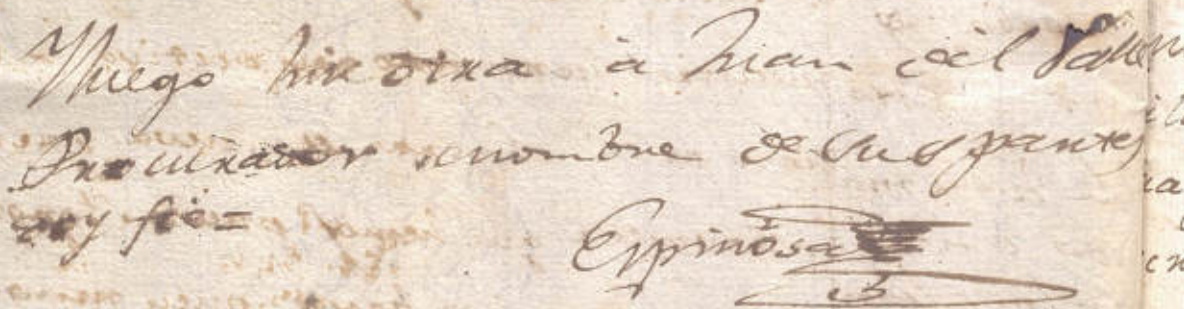 Yluego hize otra a Juan del Valle
Procurador en nombre de sus partes
doy fee=
Espinosa